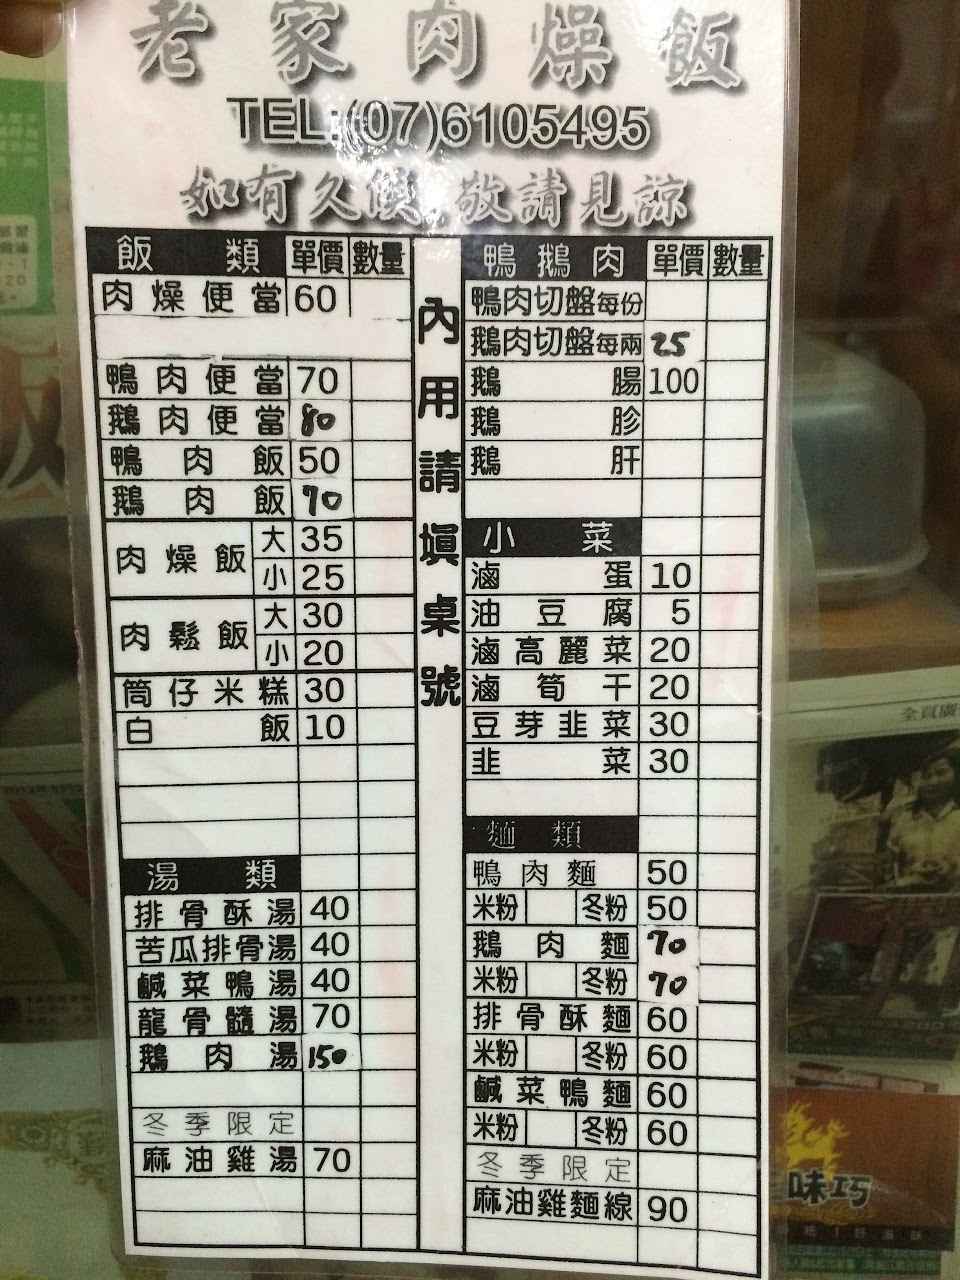 老家肉燥飯
TEL:(07)6105495
如有久候 敬請見諒
飯類 單價 數量
肉燥便當 60
鴨肉便當 70
鵝肉便當 80
鴨肉飯 50
鵝肉飯 70
肉燥飯 大 35
小 25
肉鬆飯 大 30
小 20
筒仔米糕 30
白飯 10
湯類
排骨酥湯 40
苦瓜排骨湯 40
鹹菜鴨湯 40
龍骨髓湯 70
鵝肉湯 150
冬季限定
麻油雞湯 70
內用請填桌號
鴨鵝肉 單價 數量
鴨肉切盤每份
鵝肉切盤每兩 25
鵝腸 100
鵝胗
鵝肝
小菜
滷蛋 10
油豆腐 5
滷高麗菜 20
滷筍干 20
豆芽韭菜 30
韭菜 30
麵類
鴨肉麵 50
米粉 冬粉 50
鵝肉麵 70
米粉 冬粉 70
排骨酥麵 60
米粉 冬粉 60
鹹菜鴨麵 60
米粉 冬粉 60
冬季限定
麻油雞麵線 90
全頁廣
味巧